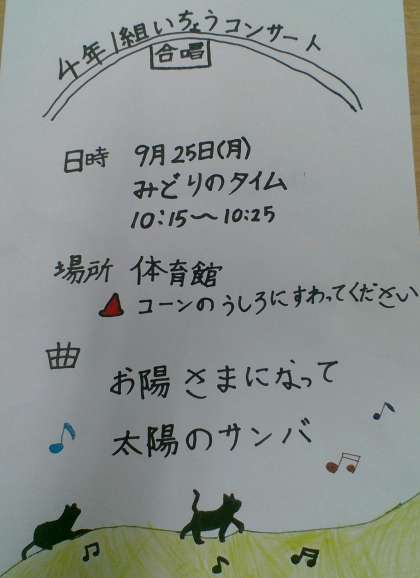 4年1組いちょうコンサート
合唱
日時 9月25日(月)
みどりのタイム
10:15～10:25
場所 体育館
コーンのうしろにすわってください
曲
お陽さまになって
太陽のサンバ